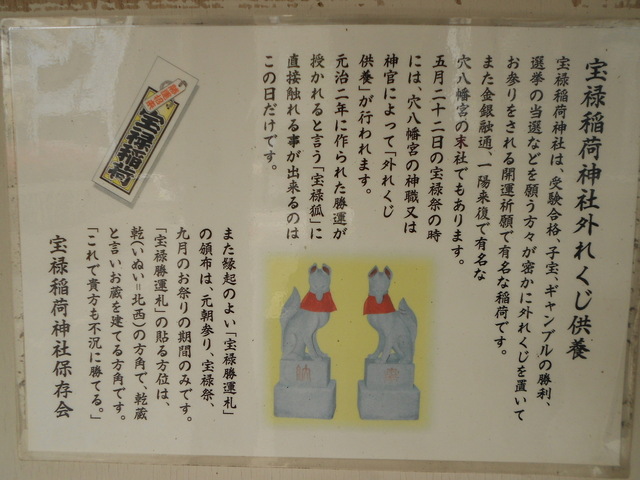 宝禄稲荷神社外れくじ供養
宝禄稲荷神社は、受験合格、子宝、ギャンブルの勝利、
選挙の当選などを願う方々が密かに外れくじを置いて
お参りをされる開運祈願で有名な稲荷です。
また金銀融通、一陽来復で有名な
穴八幡宮の末社でもあります。
五月二十二日の宝禄祭の時
には、穴八幡宮の神職又は
神官によって「外れくじ
供養」が行われます。
元治二年に作られた勝運が
授かれると言う「宝禄狐」に
直接触れる事が出来るのは
この日だけです。
宝禄稲荷
奉
納
また縁起のよい「宝禄勝運札」
の頒布は、元朝参り、宝禄祭、
九月のお祭りの期間のみです。
「宝禄勝運札」の貼る方位は、
乾(いぬい=北西)の方角で、乾蔵
と言いお蔵を建てる方角です。
「これで貴方も不況に勝てる。」
宝禄稲荷神社保存会